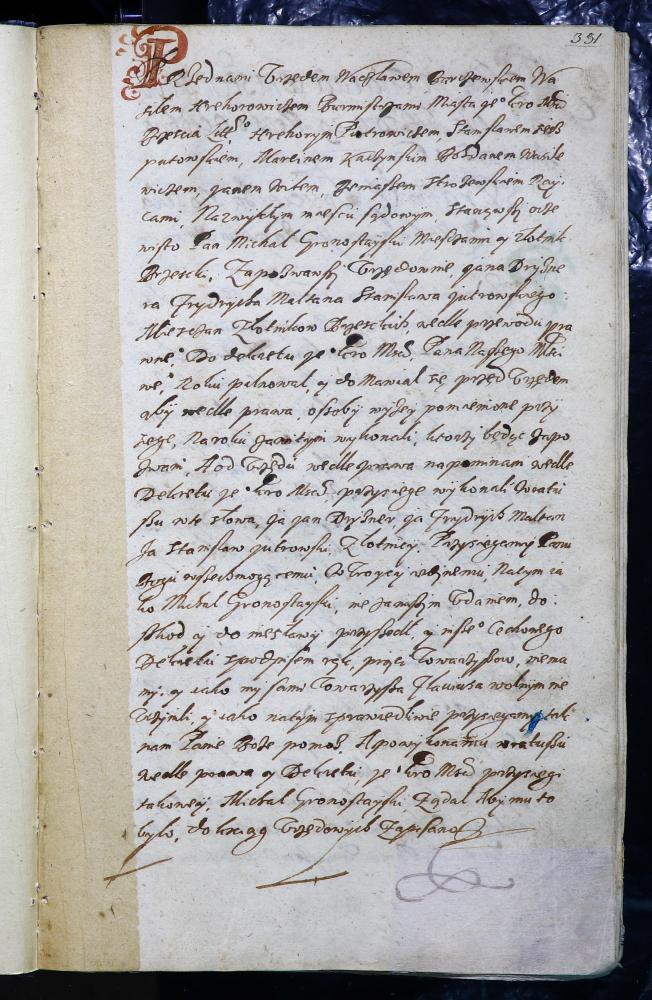 331
Przed nami Urzędem Wacławem Burczewskiem Wa
silem Hrehorowiczem Burmistrzami Miasta je° Kro Mści
Brzescia Hrehorym Piotrowiczem, Stanisławem
putowskiem, Marcinem Bohdanem Wasile
wiczem, Janem Witem, Ray,
cami, Na zwykłym mieścu sądowym, Stanąwszy ocze
wisto Pan Michał Gronostayski Mieszczanin y złotnik
Brzeski, Zapozwawszy Urzędownie, Jana Dryzne
ra Frydrycha Maltana Stanisława Jutrowskiego
Mieszczan Złotników Brzeskich, wedle przewodu pra
wne°, Do dekretu je° Kro Mści, Pana Naszego Miłści
we°, Roku pilnował, y domawiał się przed Urzędem
aby wedle prawa, osoby wyżey pomienione przy
sięgę, Na roku zawitym wykonali, ktorzy będąc zapo
zwani, A od Urzędu wedle prawa napominani wedle
Dekretu je° Kro Mści, przysięgę wykonali w ratu
szu w te słowa, Ja Jan Dryzner, Ja Frydrych Maltan
Ja Stanisław Jutrowski, Złotnicy, Przysięgamy Panu
Bogu wszechmogącemu, w Troycy iedynemu, Na tym ia
ko Michał Gronostayski, nie za naszym udaniem, do
szkod y do niesławy przyszedł, y insze° Cechowego
Dekretu z podpisem rąk, prócz Towarzyszow, niema
my, y iako my sami Towarzysza wolnym nie
uczynili, y iako na tym sprawiedliwie przysięgamy tak
nam Panie Boże pomoż, A po wykonaniu w ratuszu
wedle prawa y Dekretu, je° Kro Mści przysięgi
takowey, Michał Gronostayski Żądał Aby mu to
było, do ksiąg Urzędowych Zapisano